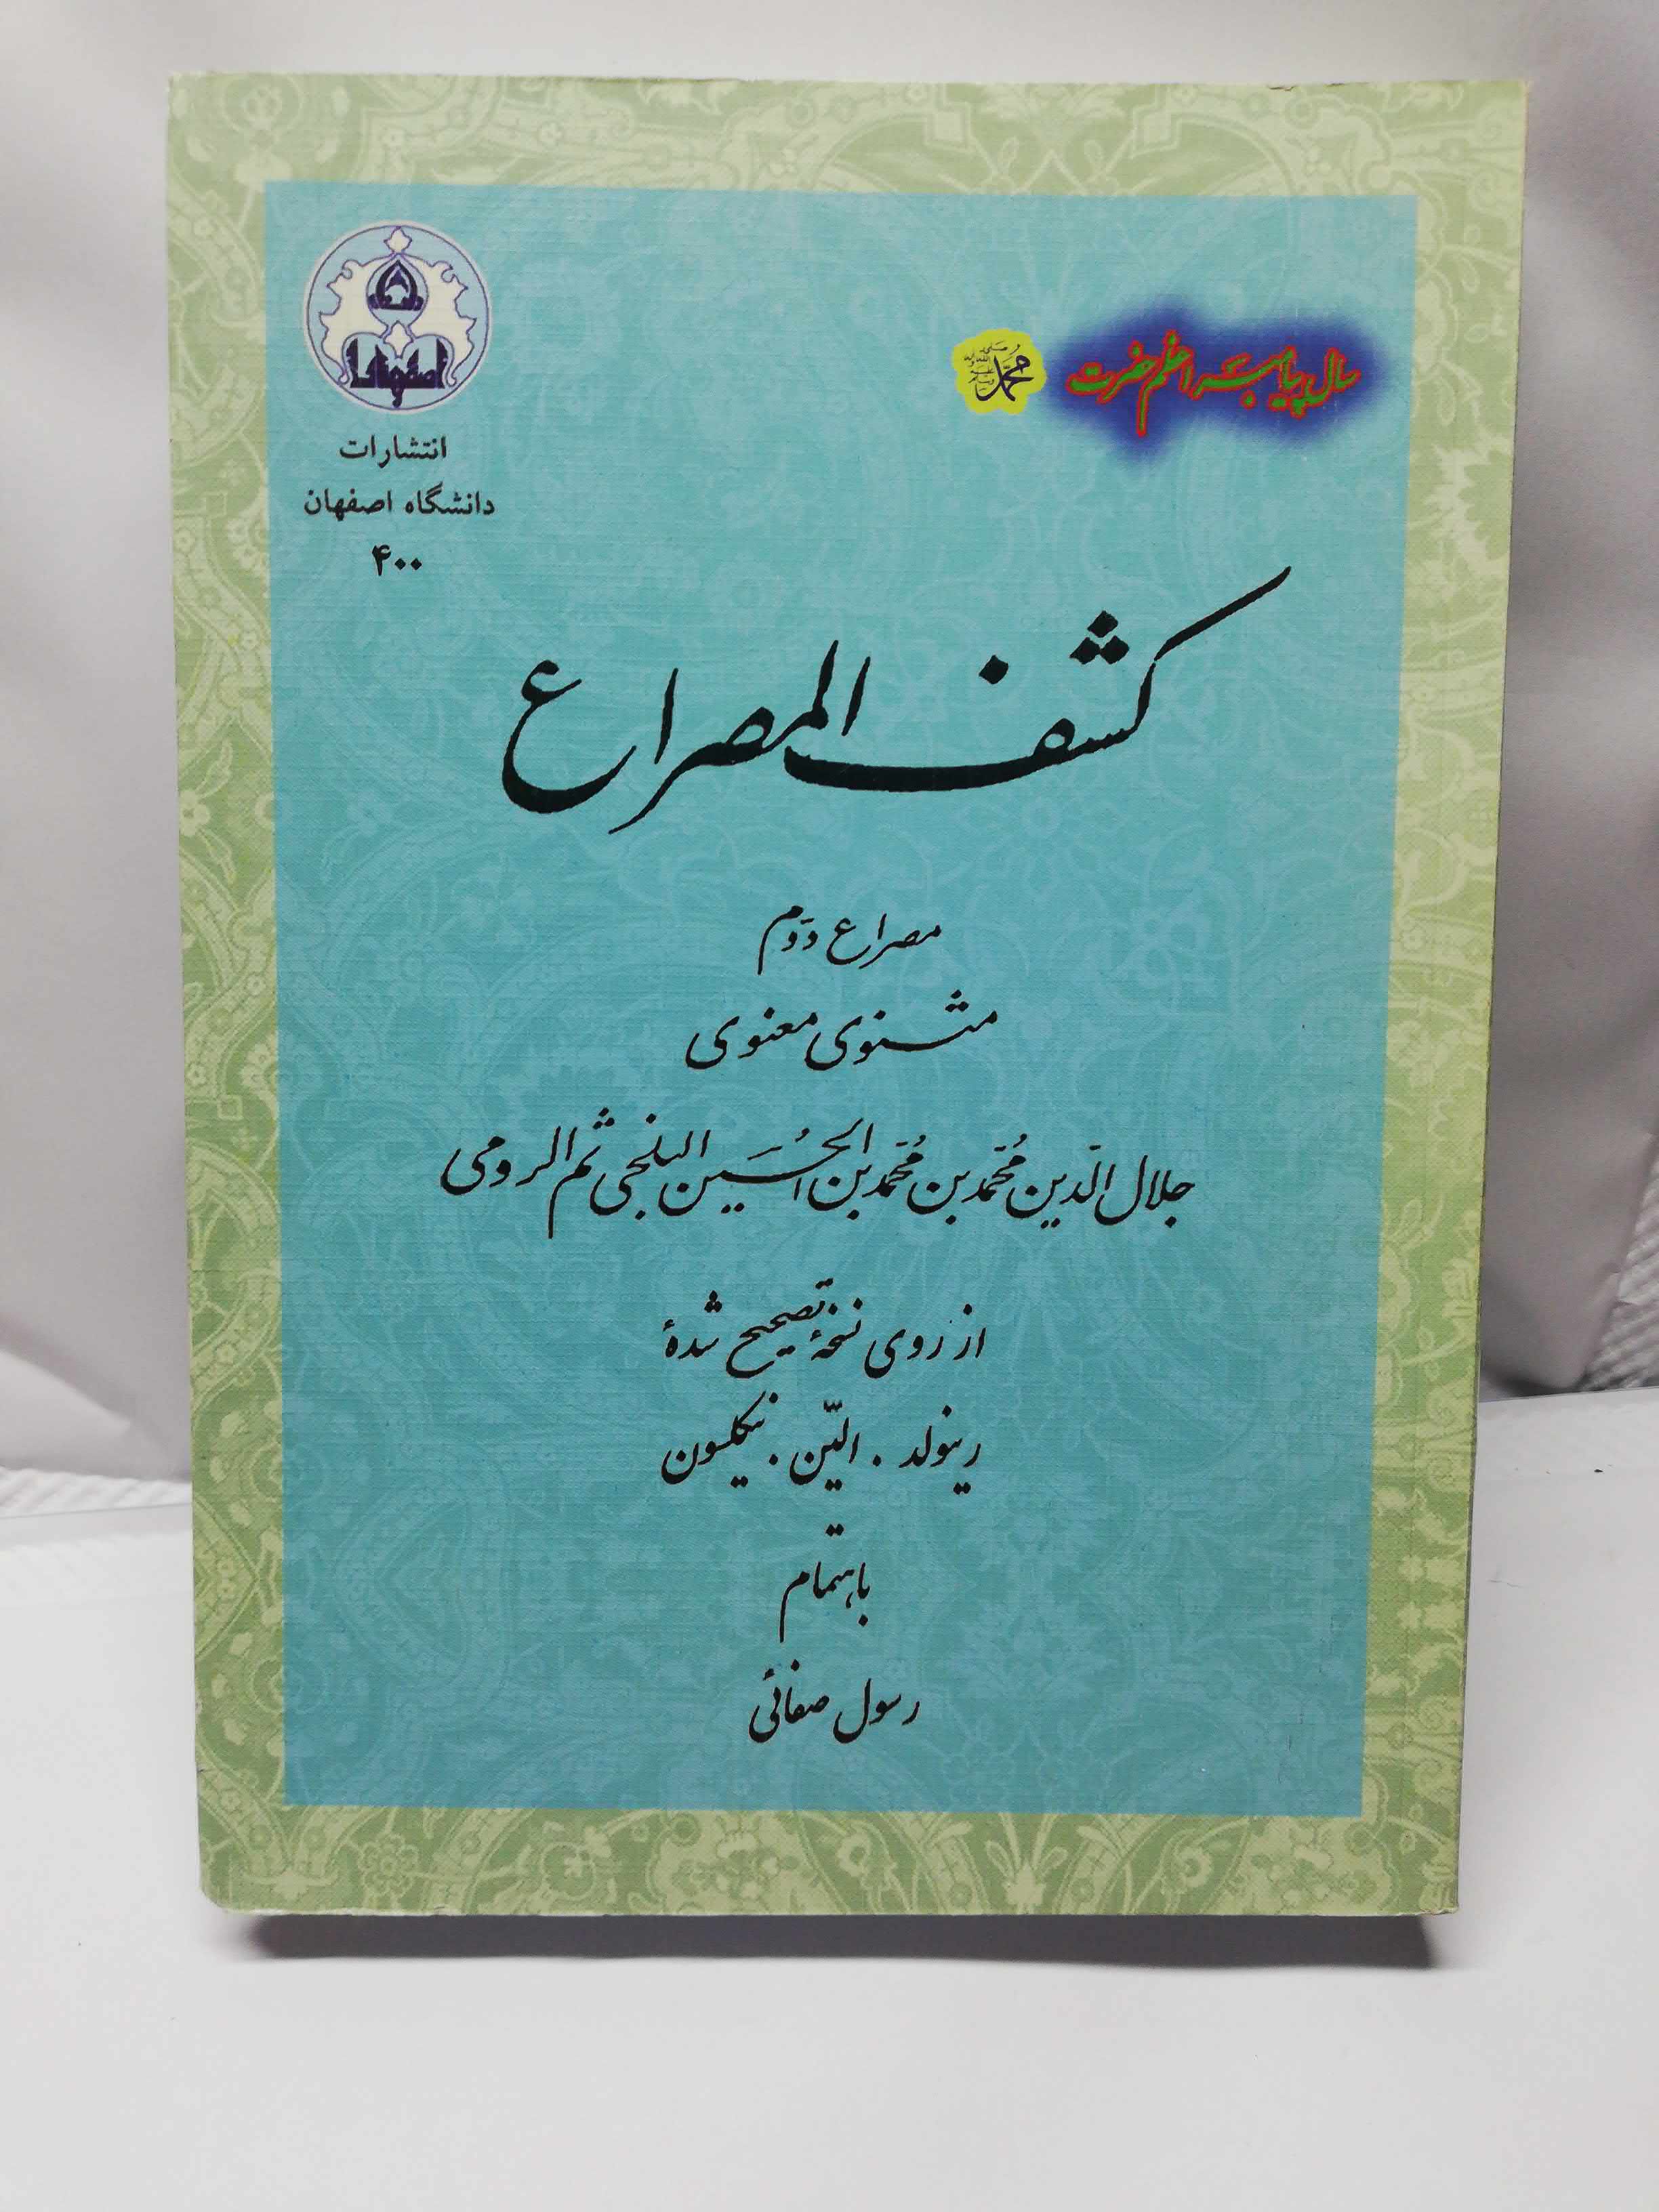 سال پیامبر اعظم حضرت محمّد
صلی الله علیه و آله و سلم
اصفهان
انتشارات
دانشگاه اصفهان
۴۰۰
کشف المصراع
مصراع دوّم
مثنوی معنوی
جلال الدّین مُحمّد بن مُحمّد بن الحُسَین البلخی ثم الرومی
از روی نسخهٔ تصحیح شدهٔ
رینولد . الّین . نیکلسون
باهتمام
رسول صفائی